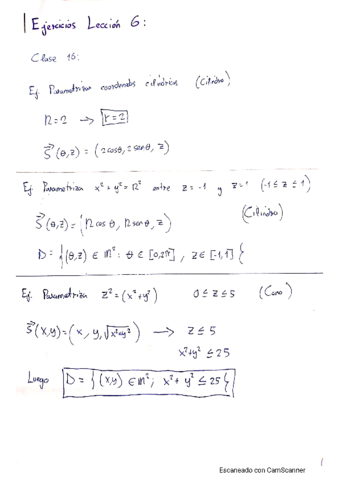 Ejercicios Lección 6:
Clase 16:
Ej. Parametrizar coordenadas cilíndricas (Cilindro)
R=2 → r=2
S⃗(θ,z) = (2cosθ, 2senθ, z)
Ej. Parametriza x²+y²=R² entre z=-1 y z=1 (-1≤z≤1)
(Cilindro)
S⃗(θ,z)=(R cosθ, R senθ, z)
D = {(θ,z) ∈ ℝ²: θ ∈ [0,2π], z ∈ [-1,1]}
Ej. Parametriza z²=(x²+y²) 0≤z≤5 (Cono)
S⃗(x,y)=(x, y, √x²+y²) → z≤5
x²+y²≤25
Luego D = {(x,y) ∈ ℝ²; x²+y²≤25}
1
Escaneado con CamScanner